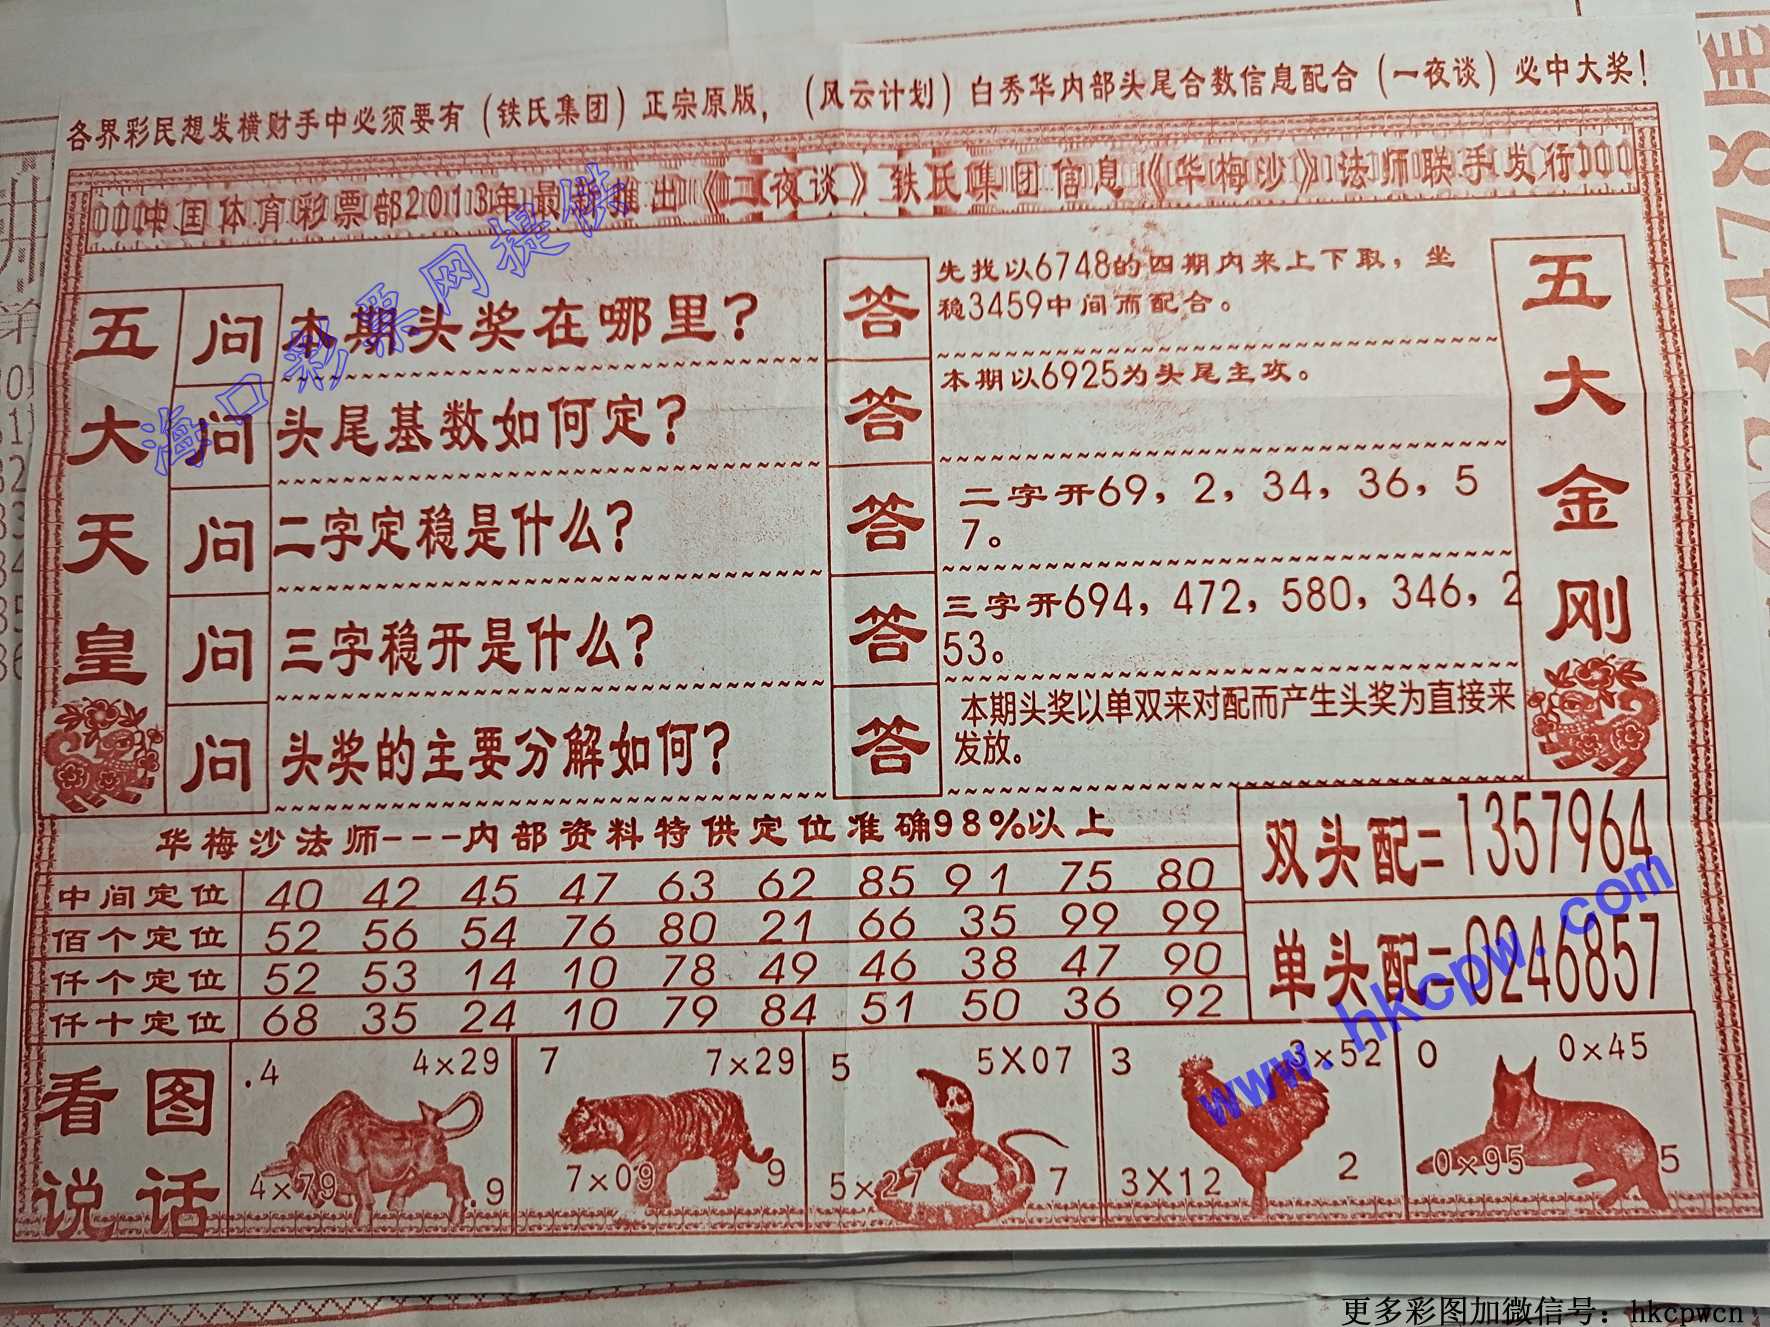 各界彩民想发横财手中必须要有（铁氏集团）正宗原版，（风云计划）白秀华内部头尾合数信息配合（一夜谈）必中大奖！
中国体育彩票部2013年最新推出《二夜谈》铁氏集团信息《华梅沙》法师联手发行
五大天皇
问 本期头奖在哪里？
答 先找以6748的四期内来上下取，坐
稳3459中间而配合。
问 头尾基数如何定？
答 本期以6925为头尾主攻。
问 二字定稳是什么？
答 二字开69，2，34，36，5
7。
问 三字稳开是什么？
答 三字开694，472，580，346，2
53。
问 头奖的主要分解如何？
答 本期头奖以单双来对配而产生头奖为直接来
发放。
五大金刚
华梅沙法师---内部资料特供定位准确98%以上
中间定位 40 42 45 47 63 62 85 91 75 80
佰个定位 52 56 54 76 80 21 66 35 99 99
仟个定位 52 53 14 10 78 49 46 38 47 90
仟十定位 68 35 24 10 79 84 51 50 36 92
双头配=1357964
单头配=0246857
看图
说话
.4 4×29
4×79 .9
7 7×29
7×09 9
5 5X07
5×27 7
3 3×52
3X12 2
0 0×45
0×95 5
海口彩票网提供
www.hkcpw.com
更多彩图加微信号：hkcpwcn